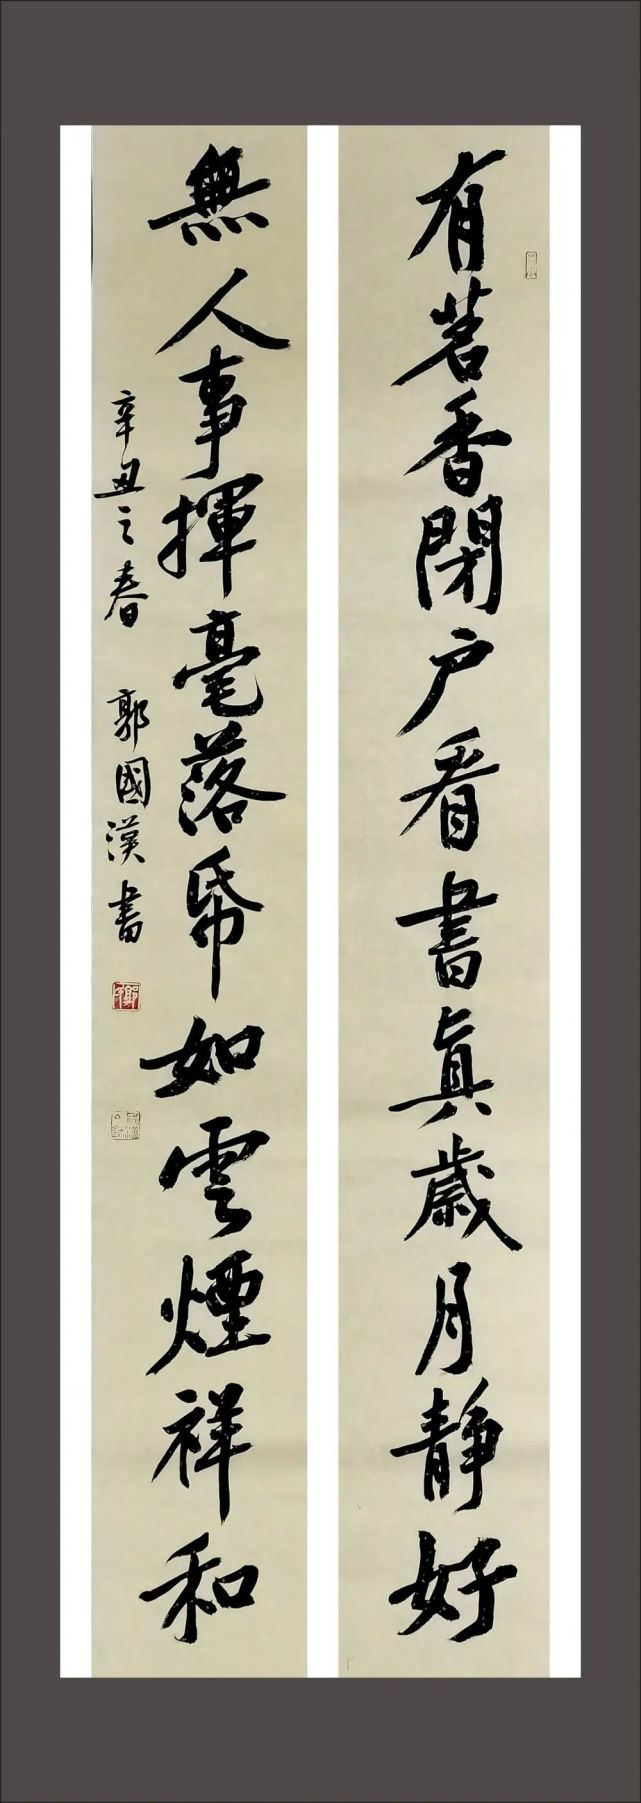 有茗香閉户看書真歲月靜好
無人事揮毫落帋如雲煙祥和
辛丑之春 郭國漢書